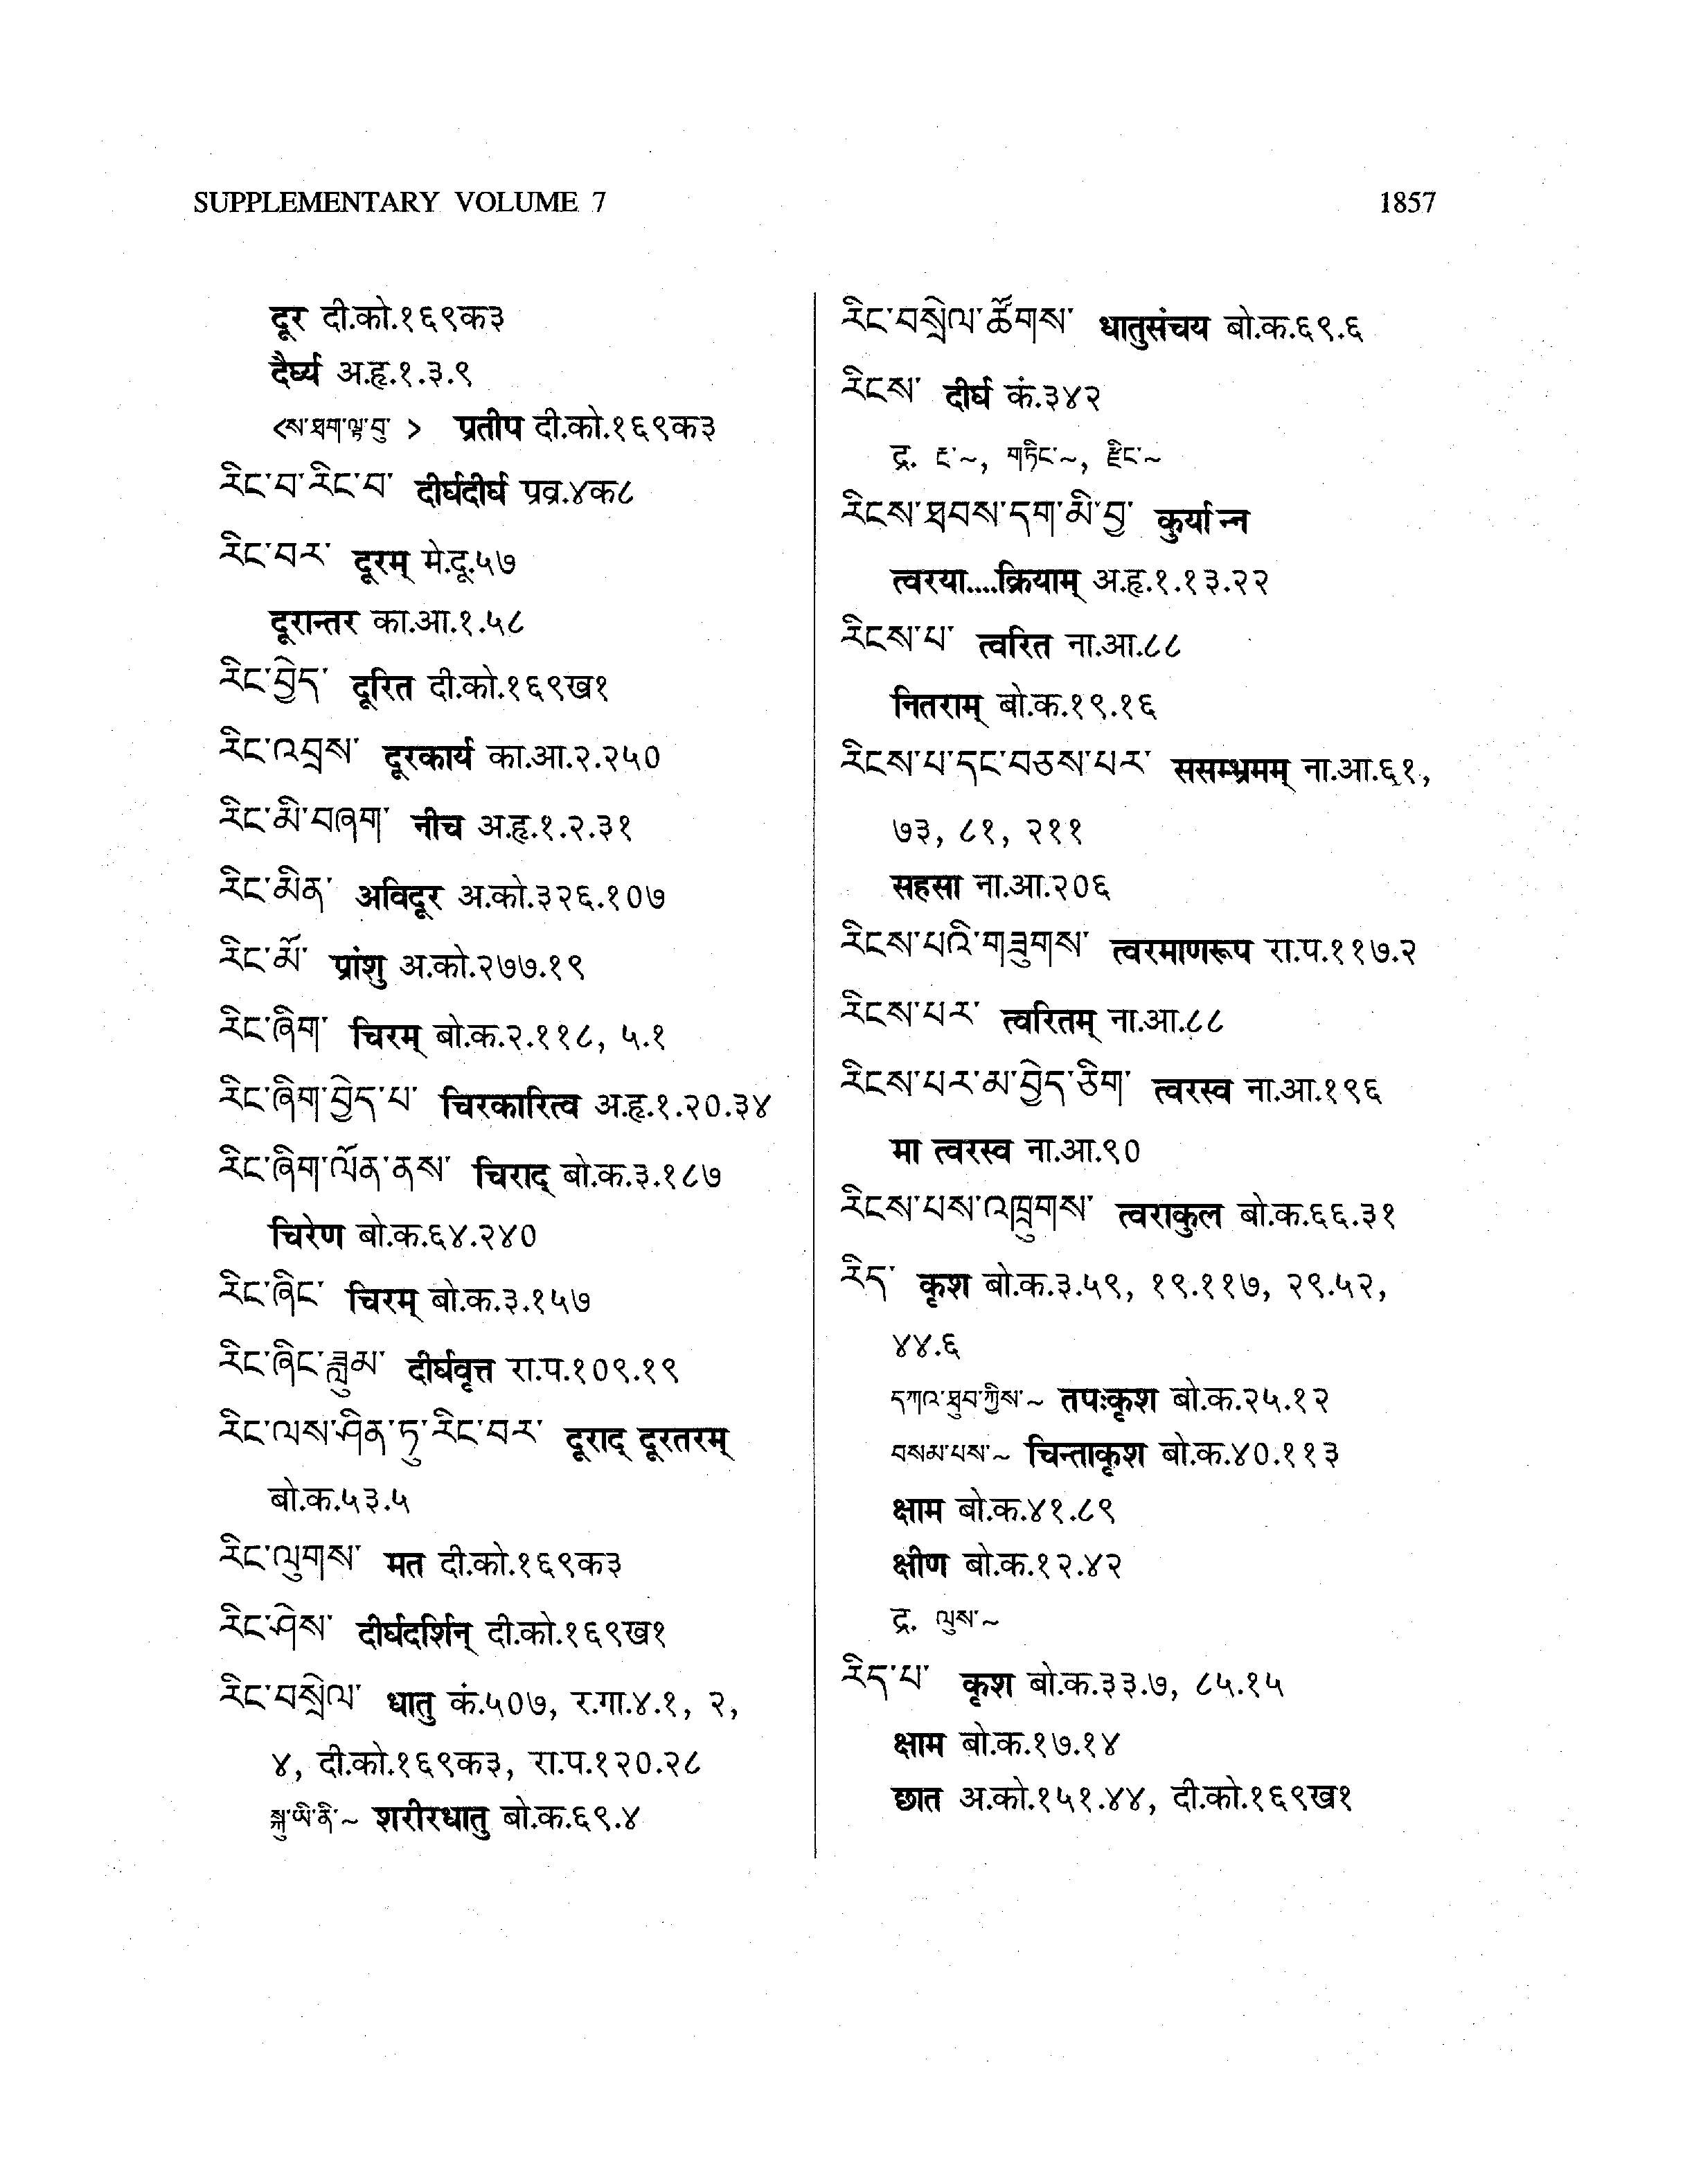 SUPPLEMENTARY VOLUME 7 1857
दूर दी.को.१६९क३
दैर्घ्य अ.हृ.१.३.९
<ས་ཐག་ལྟ་བུ་ > प्रतीप दी.को.१६९क३
རིང་བ་རིང་བ་ दीर्घदीर्घ प्रव्र.४क८
རིང་བར་ दूरम् मे.दू.५७
दूरान्तर का.आ.१.५८
རིང་བྱེད་ दूरित दी.को.१६९ख१
རིང་འབྲས་ दूरकार्य का.आ.२.२५०
རིང་མི་བཞག་ नीच अ.हृ.१.२.३१
རིང་མིན་ अविदूर अ.को.३२६.१०७
རིང་མོ་ प्रांशु अ.को.२७७.१९
རིང་ཞིག་ चिरम् बो.क.२.११८, ५.१
རིང་ཞིག་བྱེད་པ་ चिरकारित्व अ.हृ.१.२०.३४
རིང་ཞིག་ལོན་ནས་ चिराद् बो.क.३.१८७
चिरेण बो.क.६४.२४०
རིང་ཞིང་ चिरम् बो.क.३.१५७
རིང་ཞིང་ཟླུམ་ दीर्घवृत्त रा.प.१०९.१९
རིང་ལས་ཤིན་ཏུ་རིང་བར་ दूराद् दूरतरम्
बो.क.५३.५
རིང་ལུགས་ मत दी.को.१६९क३
རིང་ཤེས་ दीर्घदर्शिन् दी.को.१६९ख१
རིང་བསྲེལ་ धातु कं.५०७, र.गा.४.१, २,
४, दी.को.१६९क३, रा.प.१२०.२८
སྐུ་ཡི་ནི་~ शरीरधातु बो.क.६९.४
རིང་བསྲེལ་ཚོགས་ धातुसंचय बो.क.६९.६
རིངས་ दीर्घ कं.३४२
द्र. ང་~, གཏིང་~, རྫིང་~
རིངས་ཐབས་དག་མི་བྱ་ कुर्यान्न
त्वरया....क्रियाम् अ.हृ.१.१३.२२
རིངས་པ་ त्वरित ना.आ.८८
नितराम् बो.क.१९.१६
རིངས་པ་དང་བཅས་པར་ ससम्भ्रमम् ना.आ.६१,
७३, ८१, २११
सहसा ना.आ.२०६
རིངས་པའི་གཟུགས་ त्वरमाणरूप रा.प.११७.२
རིངས་པར་ त्वरितम् ना.आ.८८
རིངས་པར་མ་བྱེད་ཅིག་ त्वरस्व ना.आ.१९६
मा त्वरस्व ना.आ.९०
རིངས་པས་འཁྲུགས་ त्वराकुल बो.क.६६.३१
རིད་ कृश बो.क.३.५९, १९.११७, २९.५२,
४४.६
དཀའ་ཐུབ་ཀྱིས་~ तपःकृश बो.क.२५.१२
བསམ་པས་~ चिन्ताकृश बो.क.४०.११३
क्षाम बो.क.४१.८९
क्षीण बो.क.१२.४२
द्र. ལུས་~
རིད་པ་ कृश बो.क.३३.७, ८५.१५
क्षाम बो.क.१७.१४
छात अ.को.१५१.४४, दी.को.१६९ख१